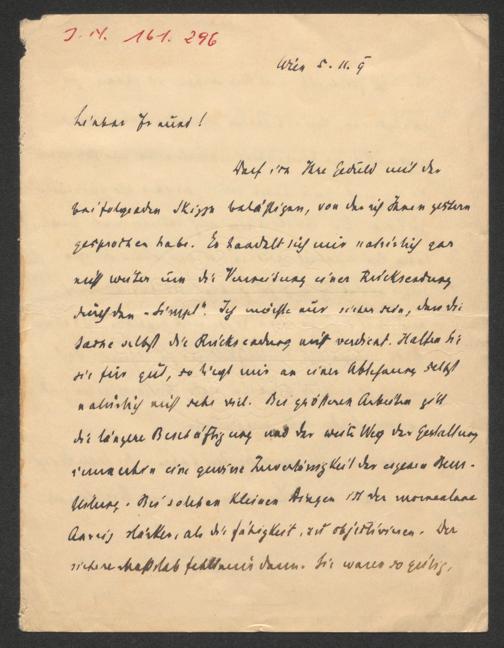 J. N. 161.296
Wien 5. 11. 9
Lieber Freund!
Darf ich Ihre Geduld mit der
beifolgenden Skizze belästigen, von der ich Ihnen gestern
gesprochen habe. Es handelt sich mir natürlich gar
nicht weiter um die Vermeidung einer Rücksendung
durch den „Simpl“. Ich möchte nur sicher sein, dass die
Sache selbst die Rücksendung nicht verdient. Halten Sie
sie für gut, so liegt mir an einer Ablehnung selbst
natürlich nicht sehr viel. Bei größeren Arbeiten gibt
die längere Beschäftigung und der weite Weg der Gestaltung
immerhin eine gewisse Zuverlässigkeit der eigenen Beur-
teilung. Bei solchen kleinen Dingen ist der momentane
Anreiz stärker, als die Fähigkeit, zu objektivieren. Der
sichere Maßstab fehlt mir dann. Sie waren so gütig,